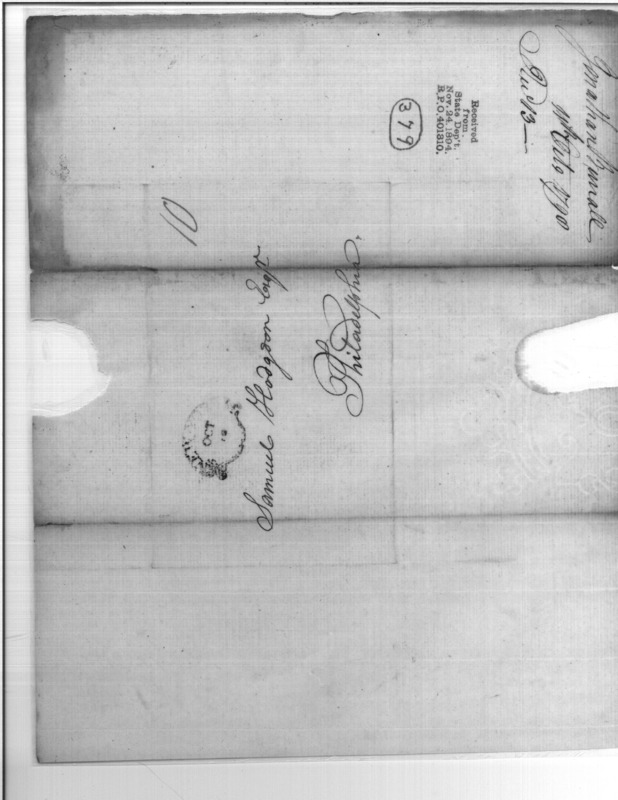 Jonathan Burrall
Octo 1790
Received
from
State Dep't.
Nov. 24, 1894.
R.P.O. 401810.
379
Samuel Hodgdon Esqr
Philadelphia.
OCT